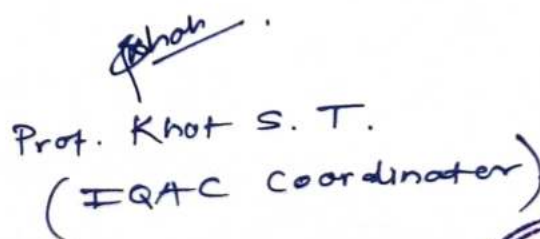 Prof. Khot S. T.
(IQAC Coordinater)